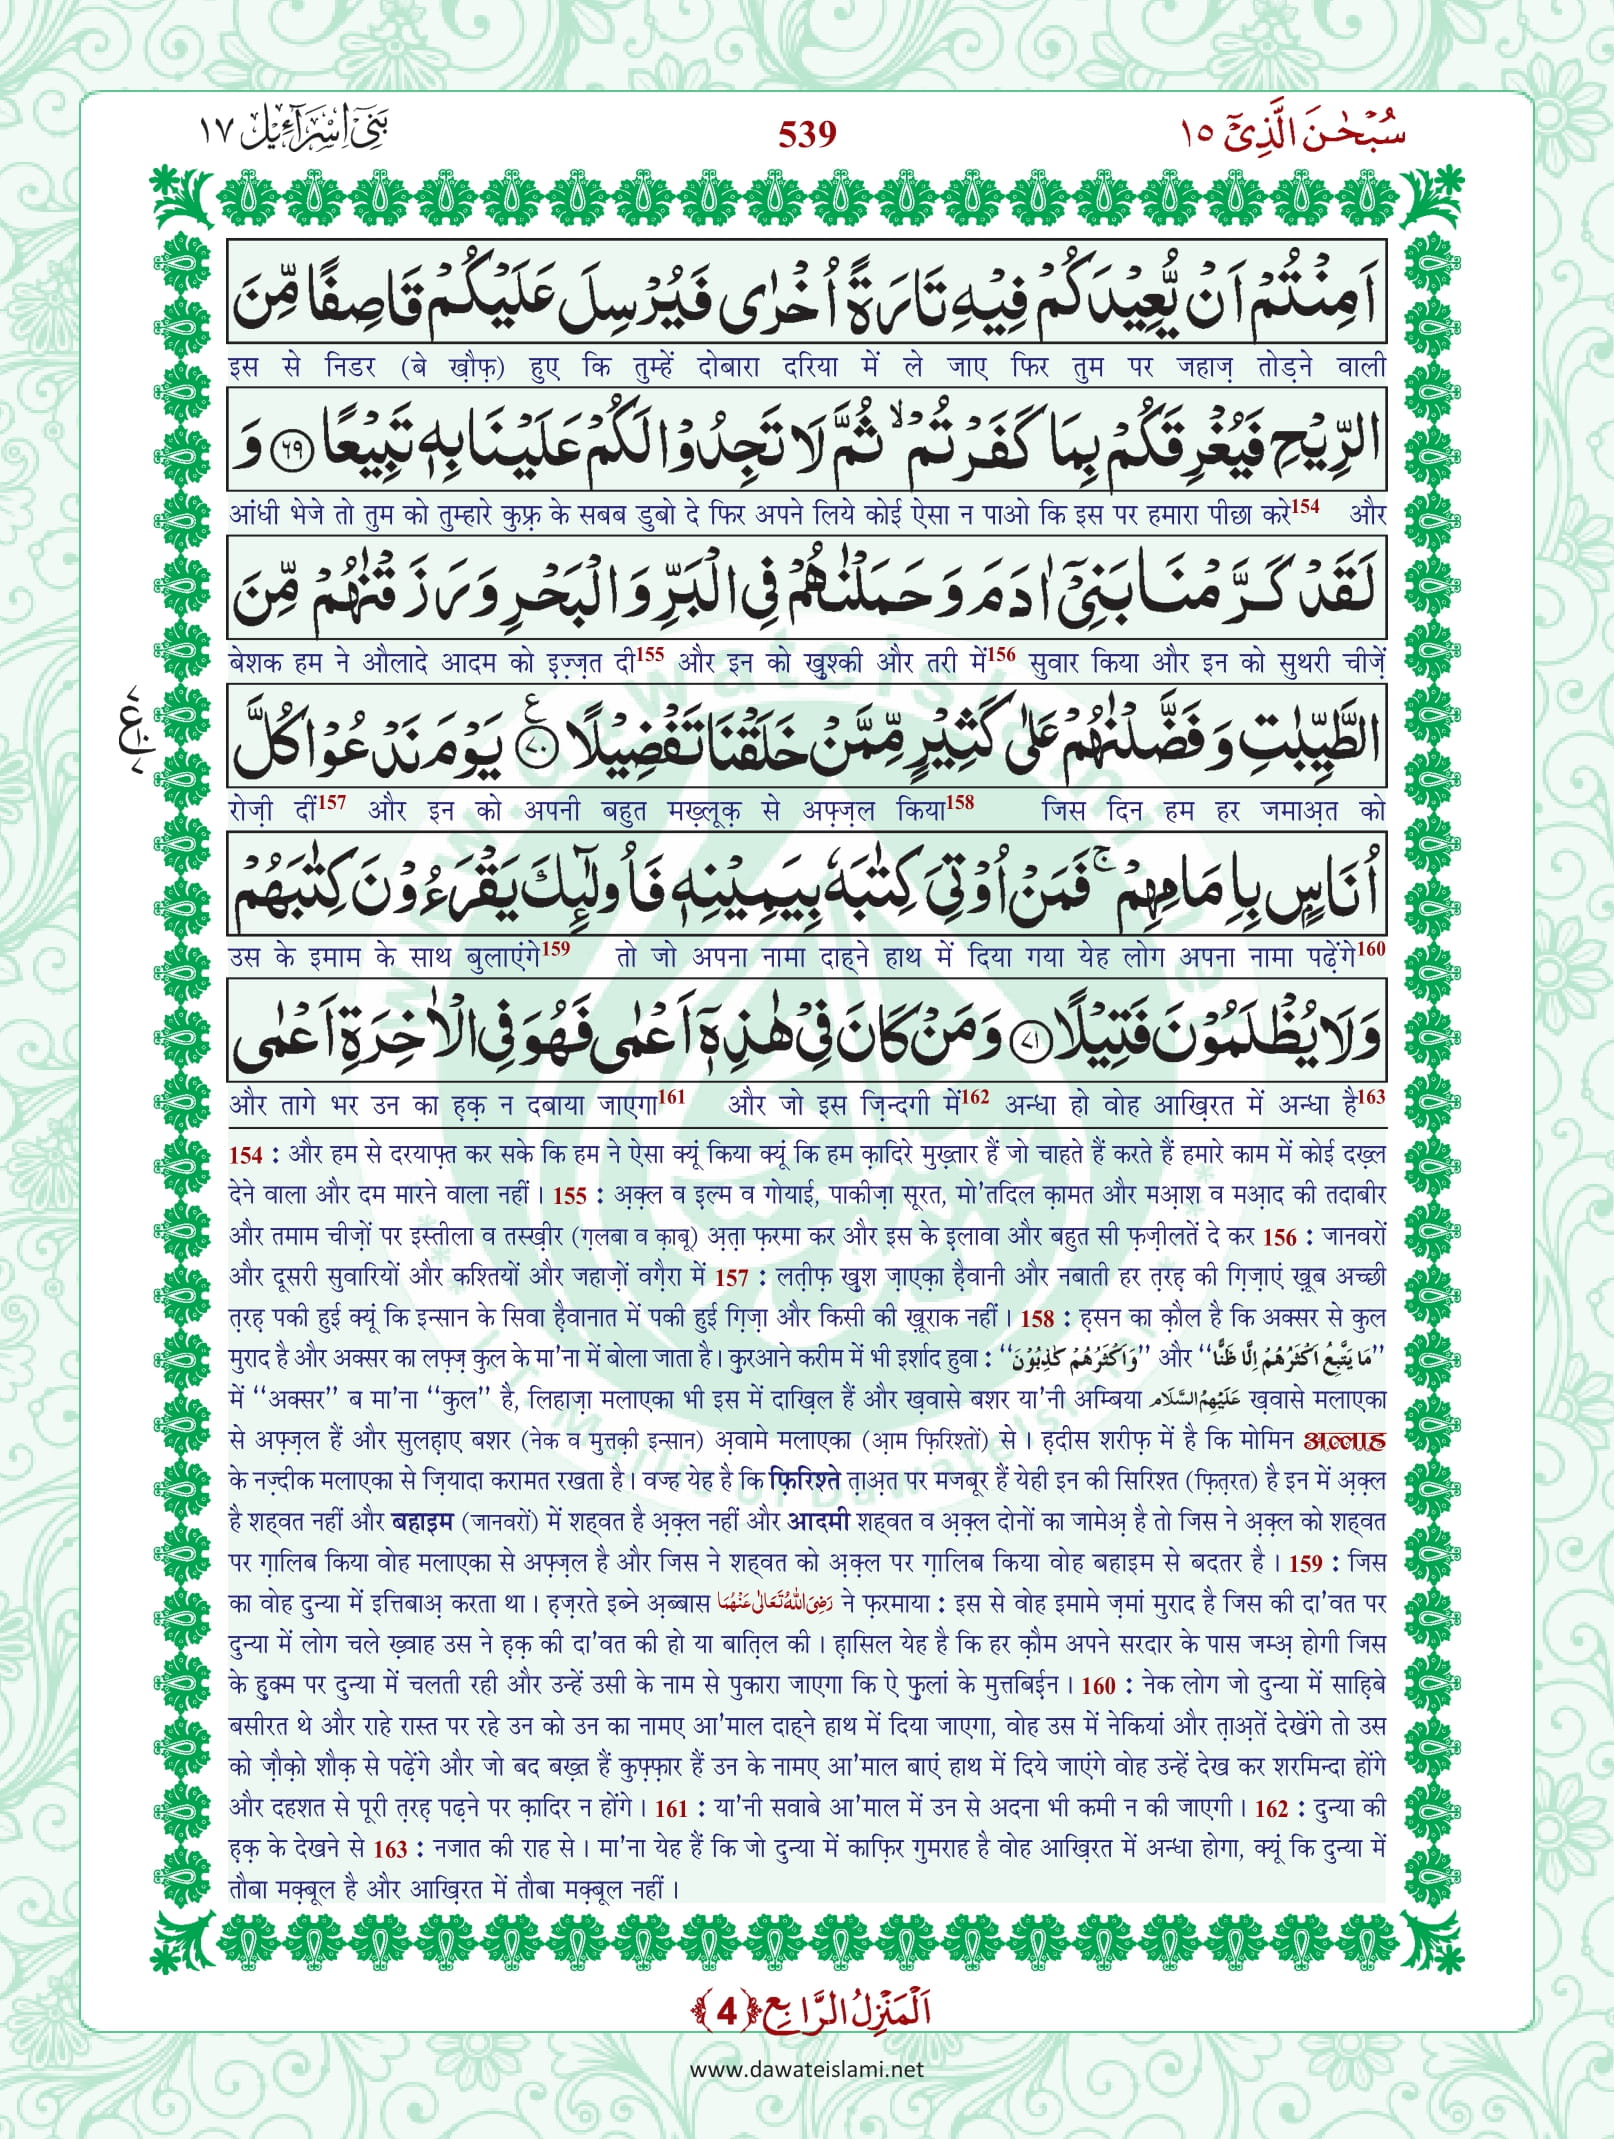 سُبْحٰنَ الَّذِیْۤ ١٥
539
بَنِیْۤ اِسْرَآءِیْل ١٧
اَمِنْتُمْ اَنْ یُّعِیْدَكُمْ فِیْهِ تَارَةً اُخْرٰى فَیُرْسِلَ عَلَیْكُمْ قَاصِفًا مِّنَ
इस से निडर (बे ख़ौफ़) हुए कि तुम्हें दोबारा दरिया में ले जाए फिर तुम पर जहाज़ तोड़ने वाली
الرِّیْحِ فَیُغْرِقَكُمْ بِمَا كَفَرْتُمْ ۙ ثُمَّ لَا تَجِدُوْا لَكُمْ عَلَیْنَا بِهٖ تَبِیْعًا ﴿٦٩﴾ وَ
आंधी भेजे तो तुम को तुम्हारे कुफ़्र के सबब डुबो दे फिर अपने लिये कोई ऐसा न पाओ कि इस पर हमारा पीछा करे154 और
لَقَدْ كَرَّمْنَا بَنِیْۤ اٰدَمَ وَ حَمَلْنٰهُمْ فِی الْبَرِّ وَ الْبَحْرِ وَ رَزَقْنٰهُمْ مِّنَ
बेशक हम ने औलादे आदम को इज़्ज़त दी155 और इन को खुश्की और तरी में156 सुवार किया और इन को सुथरी चीज़ें
الطَّیِّبٰتِ وَ فَضَّلْنٰهُمْ عَلٰى كَثِیْرٍ مِّمَّنْ خَلَقْنَا تَفْضِیْلًا ﴿٧٠﴾ ع یَوْمَ نَدْعُوْا كُلَّ
रोज़ी दीं157 और इन को अपनी बहुत मख़्लूक़ से अफ़्ज़ल किया158 जिस दिन हम हर जमाअ़त को
اُنَاسٍۭ بِاِمَامِهِمْ ۚ فَمَنْ اُوْتِیَ كِتٰبَهٗ بِیَمِیْنِهٖ فَاُولٰٓىٕكَ یَقْرَءُوْنَ كِتٰبَهُمْ
उस के इमाम के साथ बुलाएंगे159 तो जो अपना नामा दाह्ने हाथ में दिया गया येह लोग अपना नामा पढ़ेंगे160
وَ لَا یُظْلَمُوْنَ فَتِیْلًا ﴿٧١﴾ وَ مَنْ كَانَ فِیْ هٰذِهٖۤ اَعْمٰى فَهُوَ فِی الْاٰخِرَةِ اَعْمٰى
और तागे भर उन का ह़क़ न दबाया जाएगा161 और जो इस ज़िन्दगी में162 अन्धा हो वोह आख़िरत में अन्धा है163
154 : और हम से दरयाफ़्त कर सके कि हम ने ऐसा क्यूं किया क्यूं कि हम क़ादिरे मुख़्तार हैं जो चाहते हैं करते हैं हमारे काम में कोई दख़्ल
देने वाला और दम मारने वाला नहीं । 155 : अ़क़्ल व इ़ल्म व गोयाई, पाकीज़ा सूरत, मो'तदिल क़ामत और मआ़श व मआ़द की तदाबीर
और तमाम चीज़ों पर इस्तीला व तस्ख़ीर (ग़लबा व क़ाबू) अ़त़ा फ़रमा कर और इस के इ़लावा और बहुत सी फ़ज़ीलतें दे कर 156 : जानवरों
और दूसरी सुवारियों और कश्तियों और जहाज़ों वग़ैरा में 157 : लत़ीफ़ खुश ज़ाएक़ा है़वानी और नबाती हर त़रह़ की ग़िज़ाएं ख़ूब अच्छी
त़रह़ पकी हुई क्यूं कि इन्सान के सिवा है़वानात में पकी हुई ग़िज़ा और किसी की ख़ूराक नहीं । 158 : ह़सन का क़ौल है कि अक्सर से कुल
मुराद है और अक्सर का लफ़्ज़ कुल के मा'ना में बोला जाता है । क़ुरआने करीम में भी इर्शाद हुवा : ‘‘وَاَكْثَرُهُمْ كٰذِبُوْنَ’’ और ‘‘مَا یَتَّبِعُ اَكْثَرُهُمْ اِلَّا ظَنًّا’’
में ‘‘अक्सर’’ ब मा'ना ‘‘कुल’’ है, लिहाज़ा मलाएका भी इस में दाख़िल हैं और ख़वासे बशर या'नी अम्बिया عَلَیْهِمُ السَّلَام ख़वासे मलाएका
से अफ़्ज़ल हैं और सुलह़ाए बशर (नेक व मुत्तक़ी इन्सान) अ़वामे मलाएका (आ़म फ़िरिश्तों) से । ह़दीस शरीफ़ में है कि मोमिन अल्लाह
के नज़्दीक मलाएका से ज़ियादा करामत रखता है । वज्ह येह है कि फ़िरिश्ते त़ाअ़त पर मजबूर हैं येही इन की सिरिश्त (फ़ित़रत) है इन में अ़क़्ल
है शह्वत नहीं और बहाइम (जानवरों) में शह्वत है अ़क़्ल नहीं और आदमी शह्वत व अ़क़्ल दोनों का जामेअ़ है तो जिस ने अ़क़्ल को शह्वत
पर ग़ालिब किया वोह मलाएका से अफ़्ज़ल है और जिस ने शह्वत को अ़क़्ल पर ग़ालिब किया वोह बहाइम से बदतर है । 159 : जिस
का वोह दुन्या में इत्तिबाअ़ करता था । ह़ज़रते इब्ने अ़ब्बास رَضِیَ اللّٰهُ تَعَالٰی عَنْهُمَا ने फ़रमाया : इस से वोह इमामे ज़मां मुराद है जिस की दा'वत पर
दुन्या में लोग चले ख़्वाह उस ने ह़क़ की दा'वत की हो या बात़िल की । ह़ासिल येह है कि हर क़ौम अपने सरदार के पास जम्अ़ होगी जिस
के हुक्म पर दुन्या में चलती रही और उन्हें उसी के नाम से पुकारा जाएगा कि ऐ फुलां के मुत्तबिईन । 160 : नेक लोग जो दुन्या में साह़िबे
बसीरत थे और राहे रास्त पर रहे उन को उन का नामए आ'माल दाह्ने हाथ में दिया जाएगा, वोह उस में नेकियां और त़ाअ़तें देखेंगे तो उस
को ज़ौक़ो शौक़ से पढ़ेंगे और जो बद बख़्त हैं कुफ़्फ़ार हैं उन के नामए आ'माल बाएं हाथ में दिये जाएंगे वोह उन्हें देख कर शरमिन्दा होंगे
और दहशत से पूरी त़रह़ पढ़ने पर क़ादिर न होंगे । 161 : या'नी सवाबे आ'माल में उन से अदना भी कमी न की जाएगी । 162 : दुन्या की
ह़क़ के देखने से 163 : नजात की राह से । मा'ना येह हैं कि जो दुन्या में काफ़िर गुमराह है वोह आख़िरत में अन्धा होगा, क्यूं कि दुन्या में
तौबा मक़्बूल है और आख़िरत में तौबा मक़्बूल नहीं ।
اَلْمَنْزِلُ الرَّابِع ﴿4﴾
www.dawateislami.net